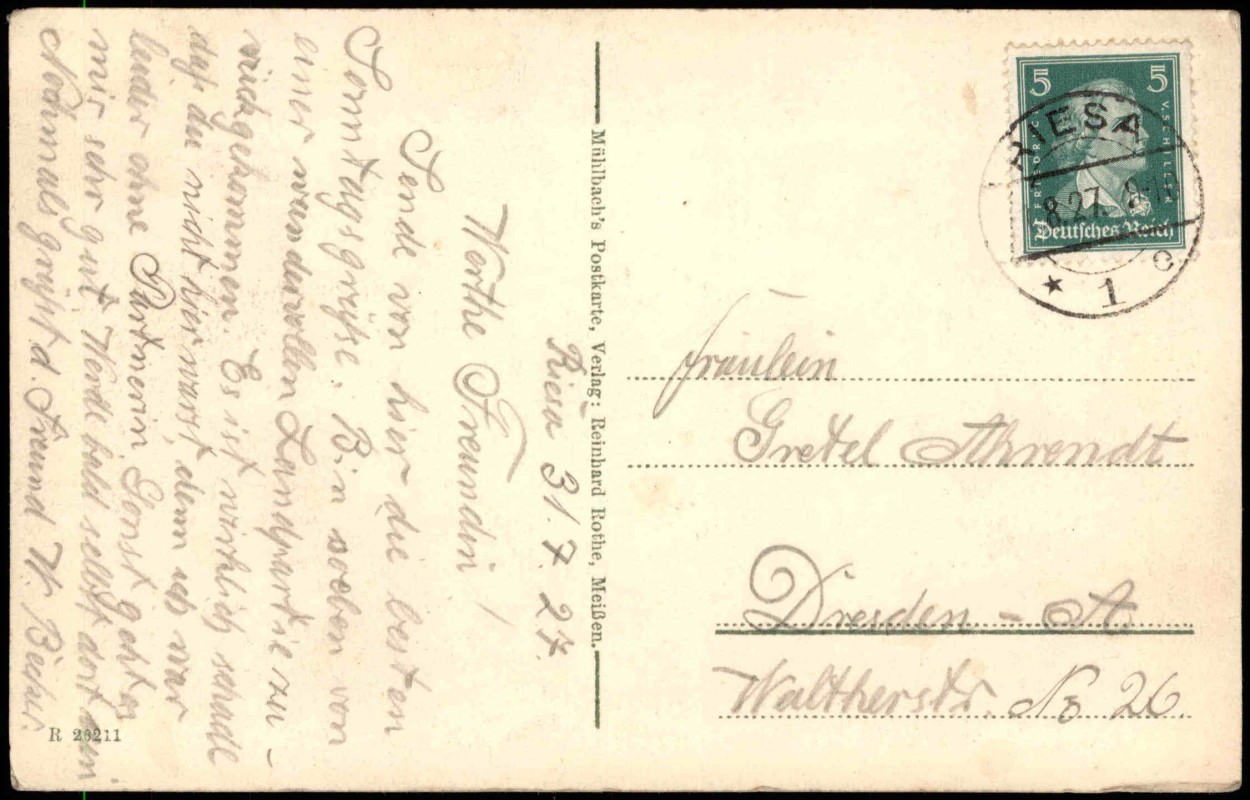 Riesa 31.7.27.
Werthe Freundin!
Sende von hier die besten
Sonntagsgrüße. Bin soeben von
einer wundervollen Landpartie zu-
rückgekommen. Es ist wirklich schade
daß du nicht hier warst, denn ich war
leider ohne Partnerin Sonst geht es
mir sehr gut Werde bald selbst dort sein
Nochmals grüßt d. Freund W.
R 26211
Mühlbach's Postkarte, Verlag: Reinhard Rothe, Meißen.
5 5
FRIEDRICH V. SCHILLER
Deutsches Reich
RIESA
8.27. 8-
* 1 c
Fräulein
Gretel Ahrendt
Dresden - A
Waltherstr. No 26.